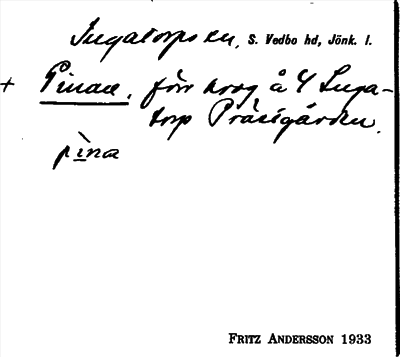 Ingatorps sn, S. Vedbo hd, Jönk. l.
+ Pinan, förr krog å Y Inga-
torp Prästgården.
pìna
FRITZ ANDERSSON 1933